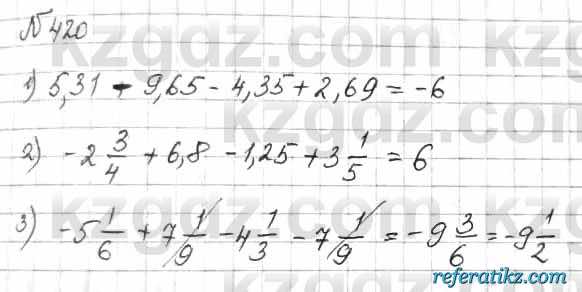 №420
1) 5,31 - 9,65 - 4,35 + 2,69 = -6
2) -2 3/4 + 6,8 - 1,25 + 3 1/5 = 6
3) -5 1/6 + 7 1/9 - 4 1/3 - 7 1/9 = -9 3/6 = -9 1/2
referatikz.com